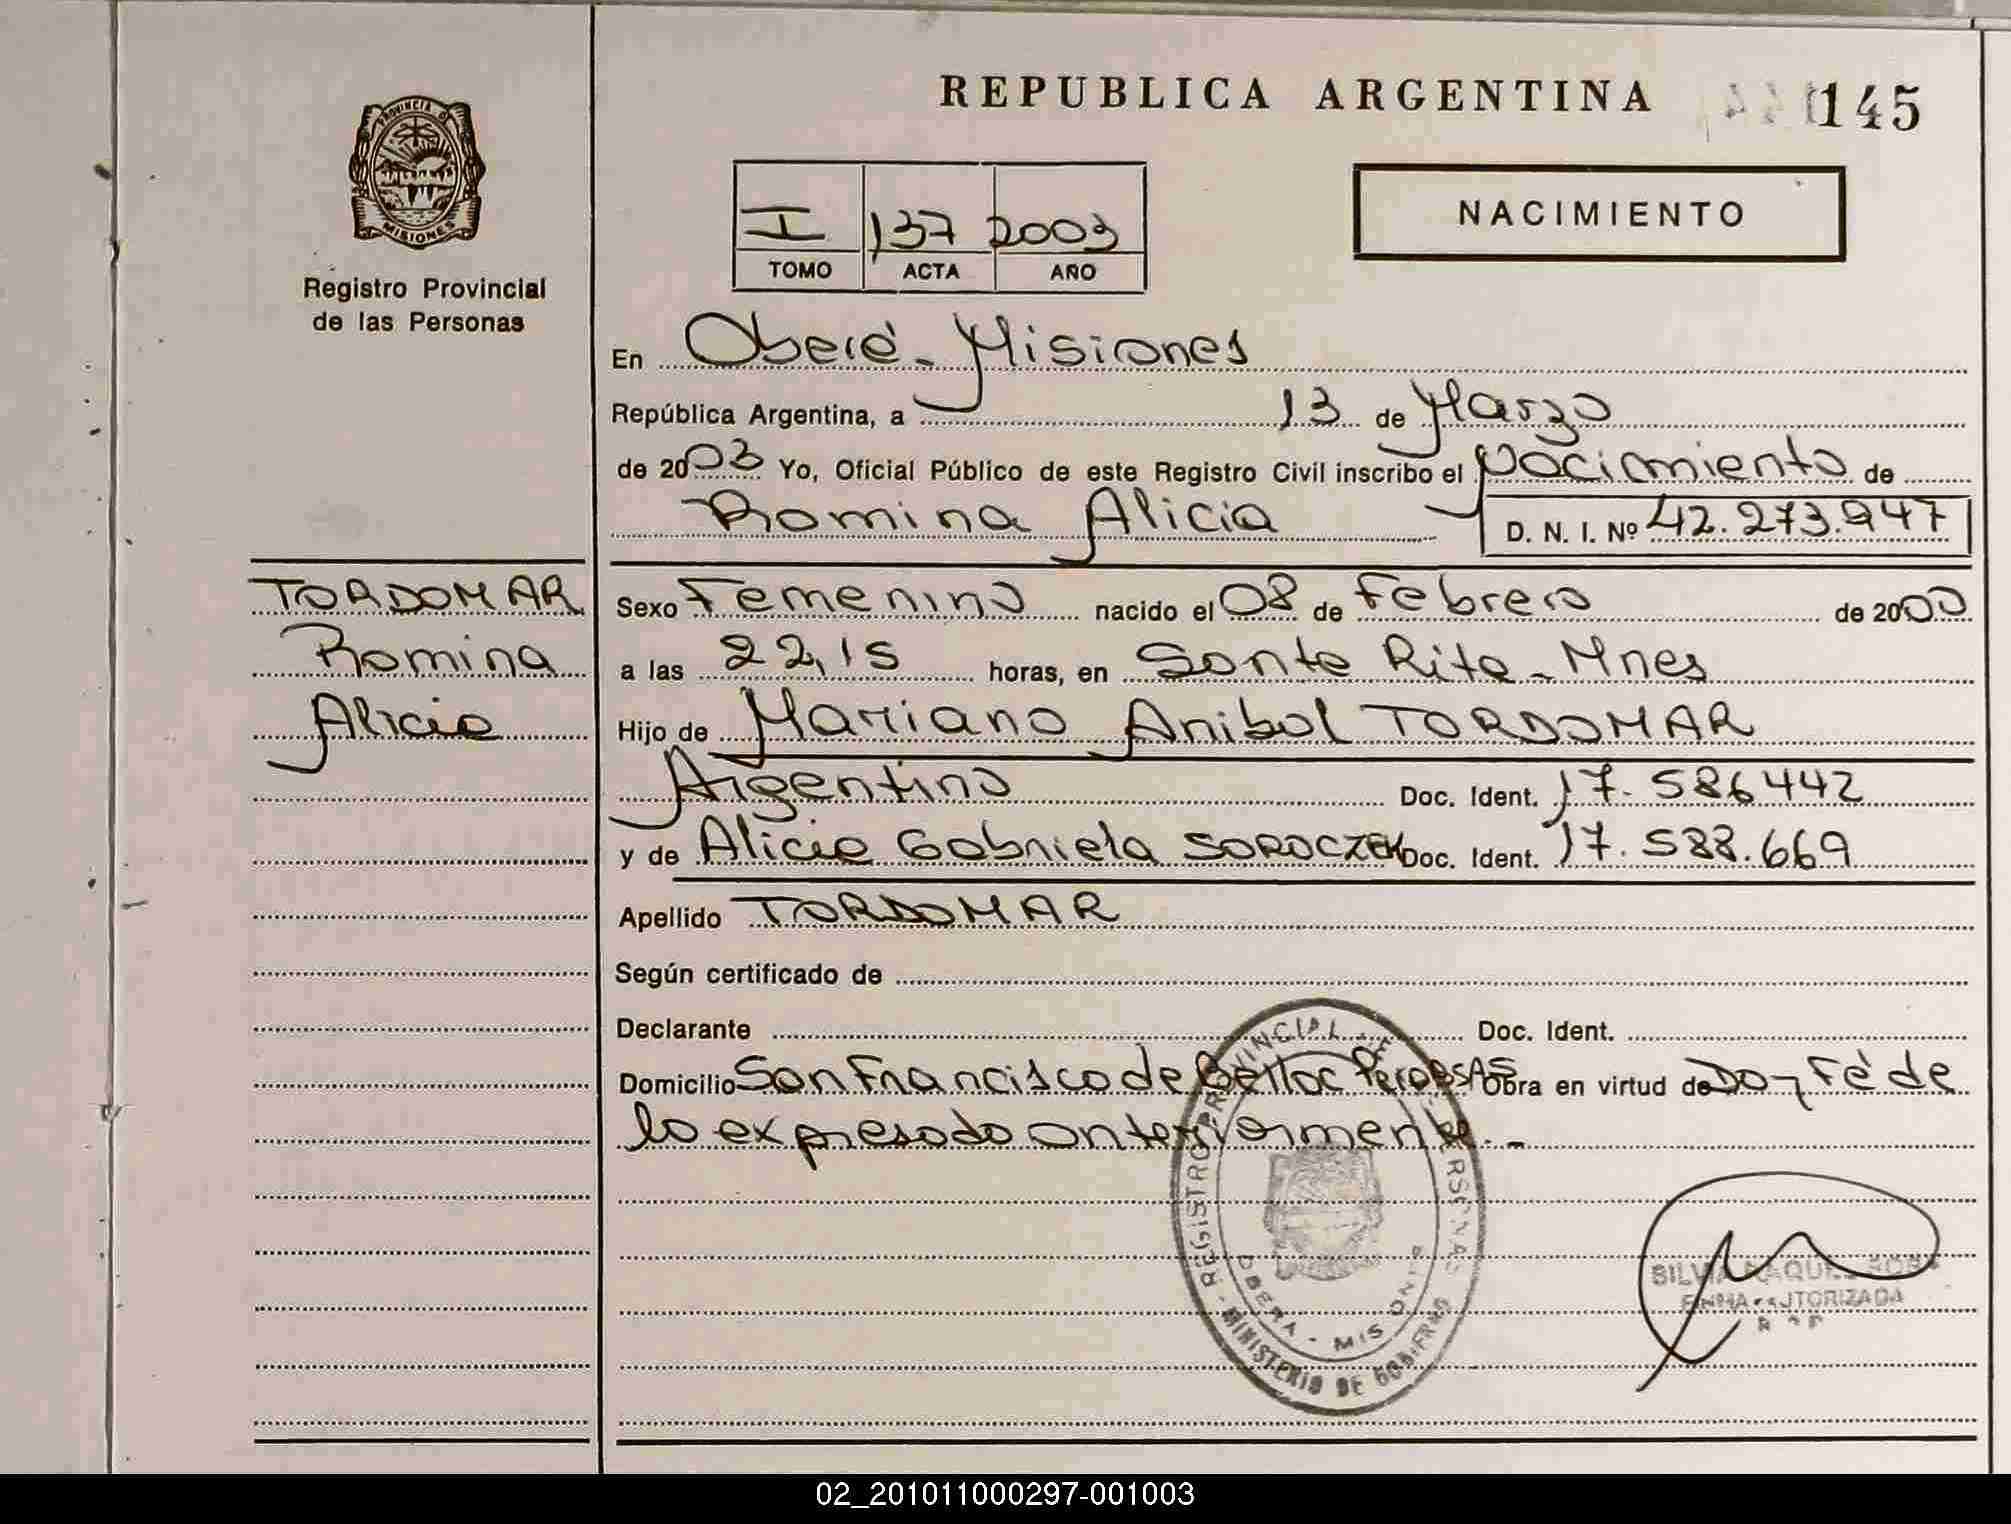 REPUBLICA ARGENTINA
145
PROVINCIA DE
MISIONES
Registro Provincial
de las Personas
I 137 2003
TOMO ACTA AÑO
NACIMIENTO
En Oberá - Misiones
República Argentina, a 13 de Marzo
de 2003 Yo, Oficial Público de este Registro Civil inscribo el Nacimiento de
Romina Alicia
D. N. I. Nº 42.273.947
TORDOMAR
Romina
Alicia
Sexo Femenino nacido el 08 de Febrero de 2000
a las 22,15 horas, en Santa Rita - Mnes
Hijo de Mariano Anibal TORDOMAR
Argentino Doc. Ident. 17.586442
y de Alicia Gabriela SOROCZEK Doc. Ident. 17.588.669
Apellido TORDOMAR
Según certificado de
Declarante Doc. Ident.
Domicilio San Francisco de Obra en virtud de Doy Fé de
lo expresado anteriormente.-
REGISTRO PROVINCIAL DE PERSONAS
OBERA - MISIONES
MINISTERIO DE GOBIERNO
SILVIA
FIRMA AUTORIZADA
02_201011000297-001003